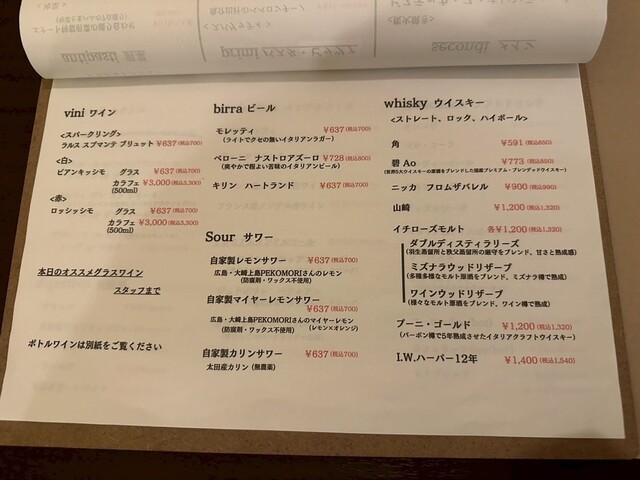 vini ワイン
<スパークリング>
ラルス スプマンテ ブリュット ¥637(税込700)
<白>
ビアンキッシモ グラス ¥637(税込700)
カラフェ ¥3,000(税込3,300)
(500ml)
<赤>
ロッシッシモ グラス ¥637(税込700)
カラフェ ¥3,000(税込3,300)
(500ml)
本日のオススメグラスワイン
スタッフまで
ボトルワインは別紙をご覧ください
birra ビール
モレッティ ¥637(税込700)
(ライトでクセの無いイタリアンラガー)
ペローニ ナストロアズーロ ¥728(税込800)
(爽やかで程よい苦味のイタリアンビール)
キリン ハートランド ¥637(税込700)
Sour サワー
自家製レモンサワー ¥637(税込700)
広島・大崎上島PEKOMORIさんのレモン
(防腐剤・ワックス不使用)
自家製マイヤーレモンサワー
¥637(税込700)
広島・大崎上島PEKOMORIさんのマイヤーレモン
(防腐剤・ワックス不使用) (レモン×オレンジ)
自家製カリンサワー ¥637(税込700)
太田産カリン (無農薬)
whisky ウイスキー
<ストレート、ロック、ハイボール>
角 ¥591(税込650)
碧 Ao ¥773(税込850)
(世界5大ウイスキーの原酒をブレンドした国産プレミアム・ブレンデッドウイスキー)
ニッカ フロムザバレル ¥900(税込990)
山崎 ¥1,200(税込1,320)
イチローズモルト 各¥1,200(税込1,320)
ダブルディスティラリーズ
(羽生蒸留所と秩父蒸留所の原酒をブレンド、甘さと熟成感)
ミズナラウッドリザーブ
(多種多様なモルト原酒をブレンド、ミズナラ樽で熟成)
ワインウッドリザーブ
(様々なモルト原酒をブレンド、ワイン樽で熟成)
プーニ・ゴールド ¥1,200(税込1,320)
(バーボン樽で5年熟成させたイタリアクラフトウイスキー)
I.W.ハーパー12年 ¥1,400(税込1,540)